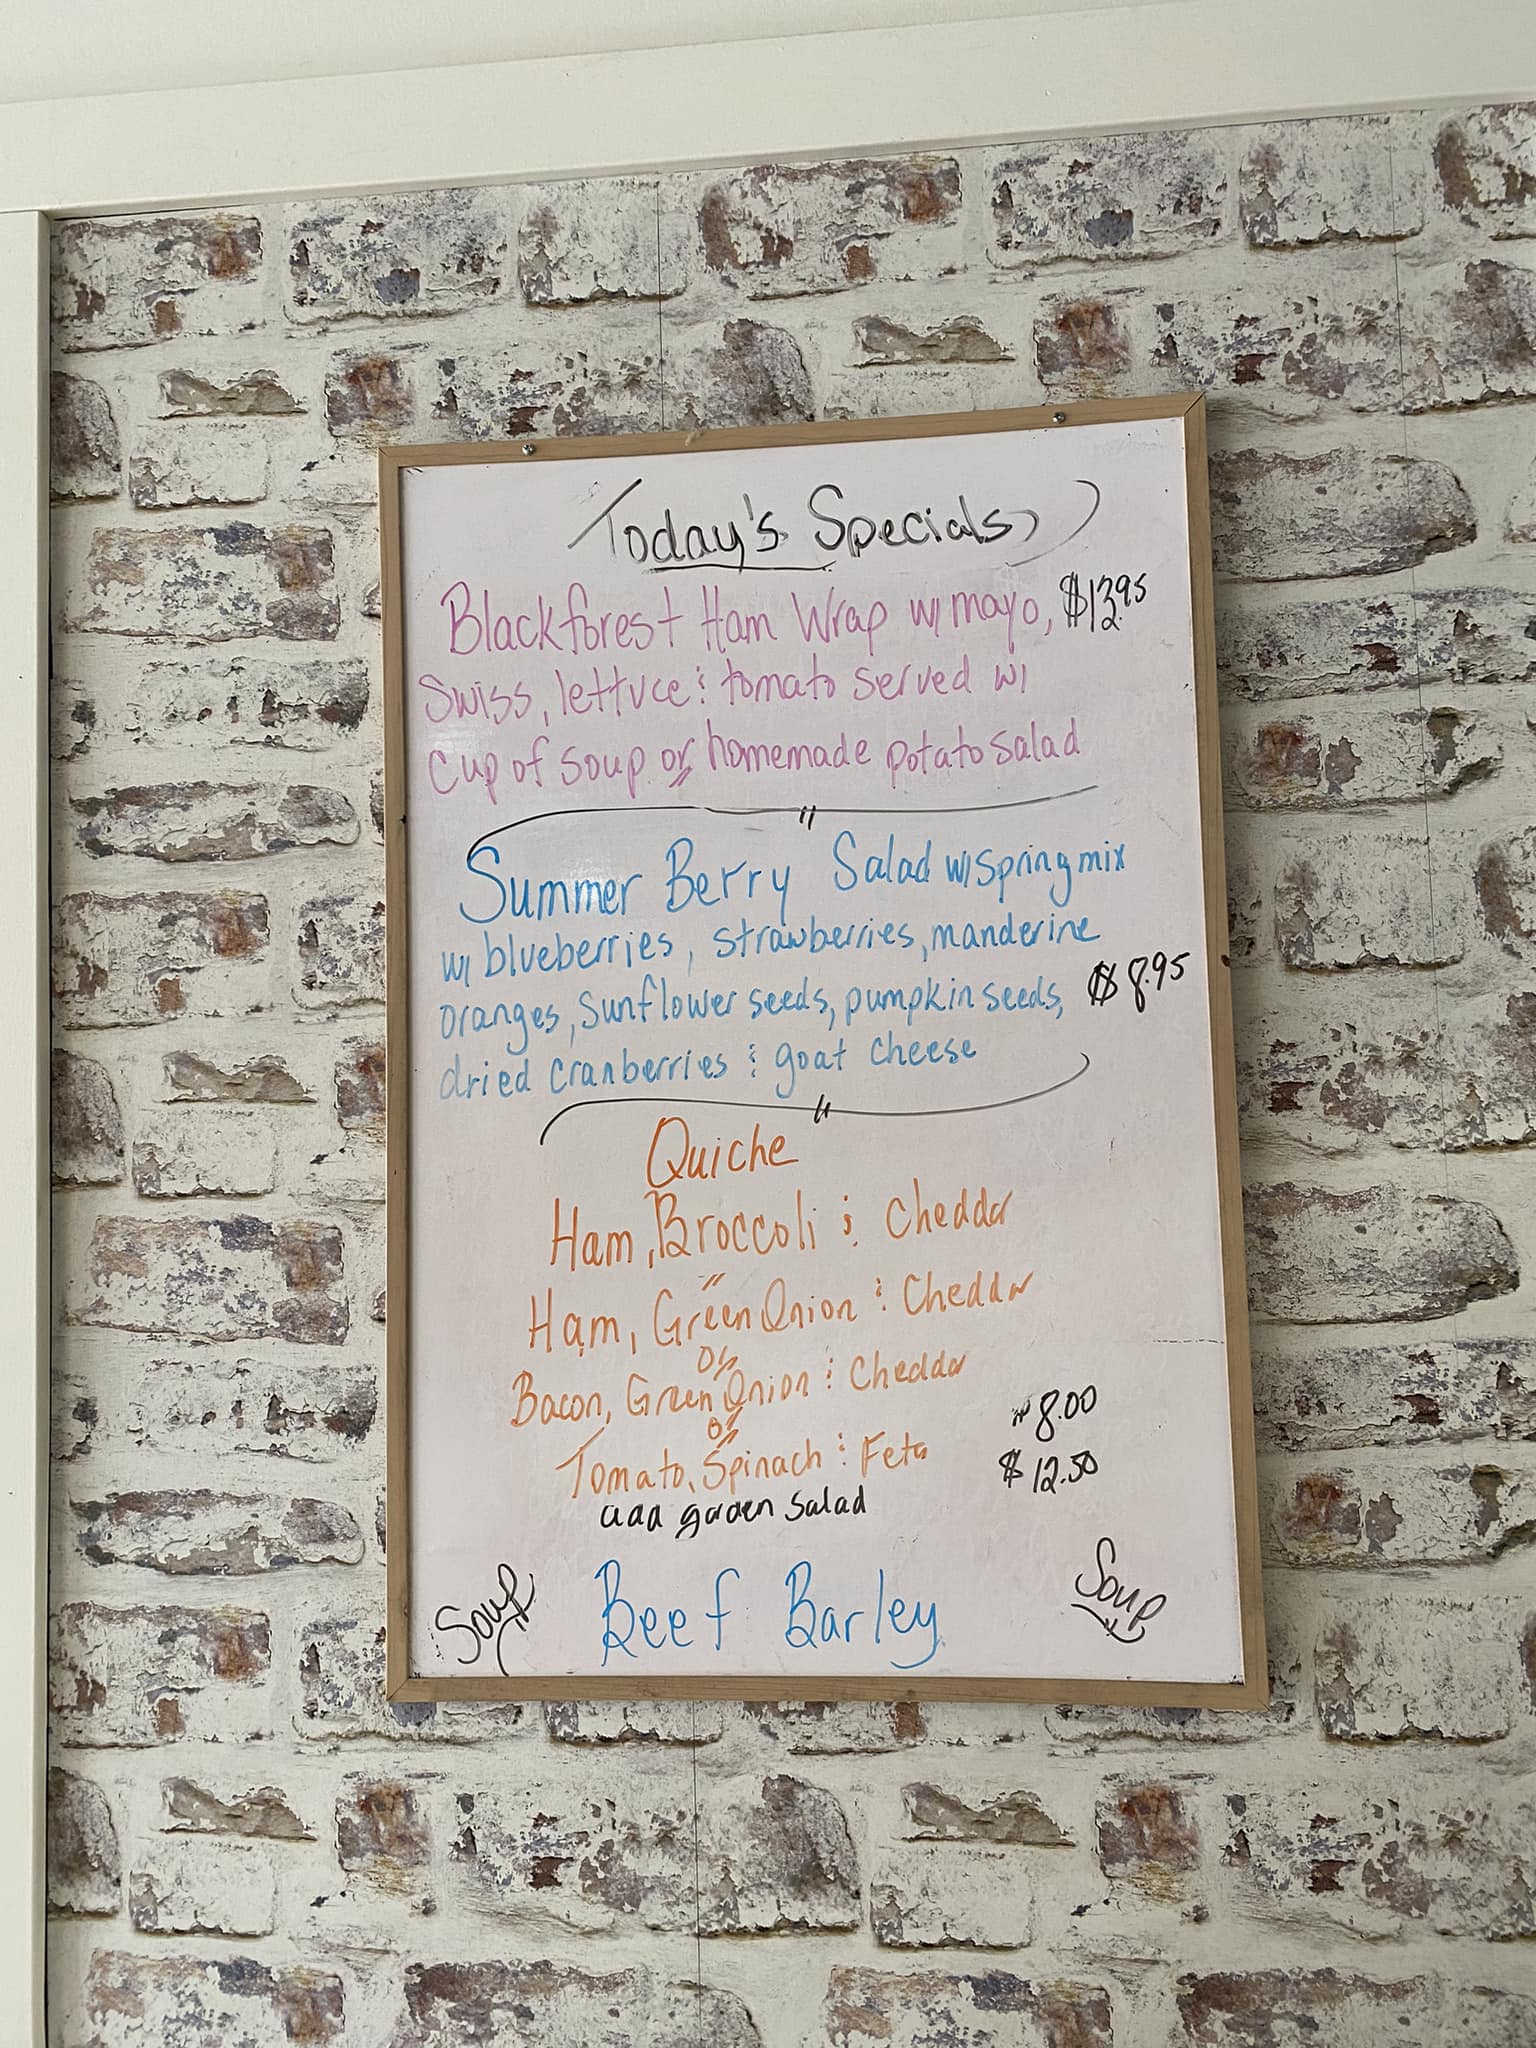 Today's Specials
Blackforest Ham Wrap w/ mayo,
Swiss, lettuce & tomato served w/
cup of soup or homemade potato salad
Summer Berry Salad w/ spring mix
w/ blueberries, strawberries, manderine
oranges, sunflower seeds, pumpkin seeds, $8.95
dried cranberries & goat cheese
Quiche
Ham, Broccoli & Cheddar
Ham, Green Onion & Cheddar
or
Bacon, Green Onion & Cheddar
or
Tomato, Spinach & Feta $8.00
add garden salad $12.50
Soup Beef Barley Soup